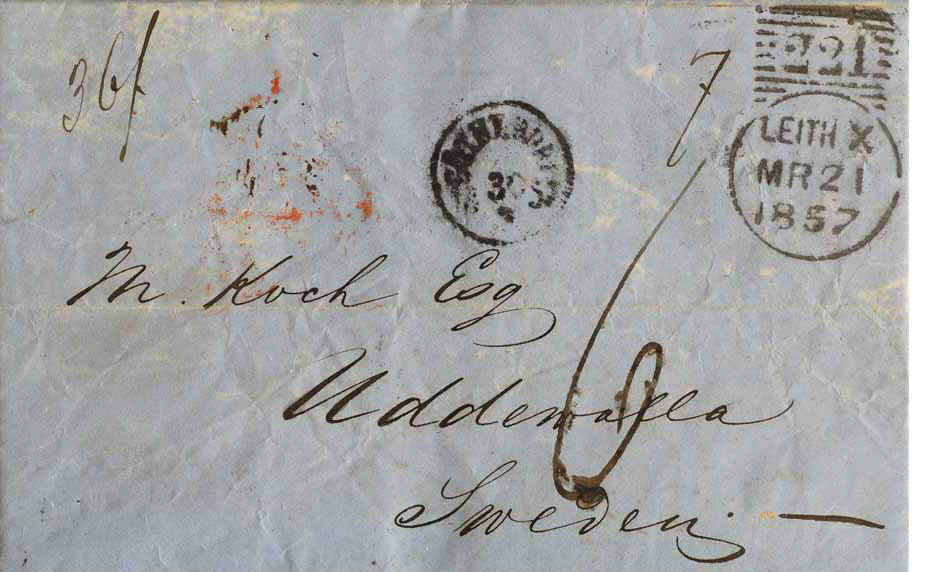 36/
7
221
LEITH X
MR 21
1857
M. Koch Esq
Uddewalla
Sweden. —
6